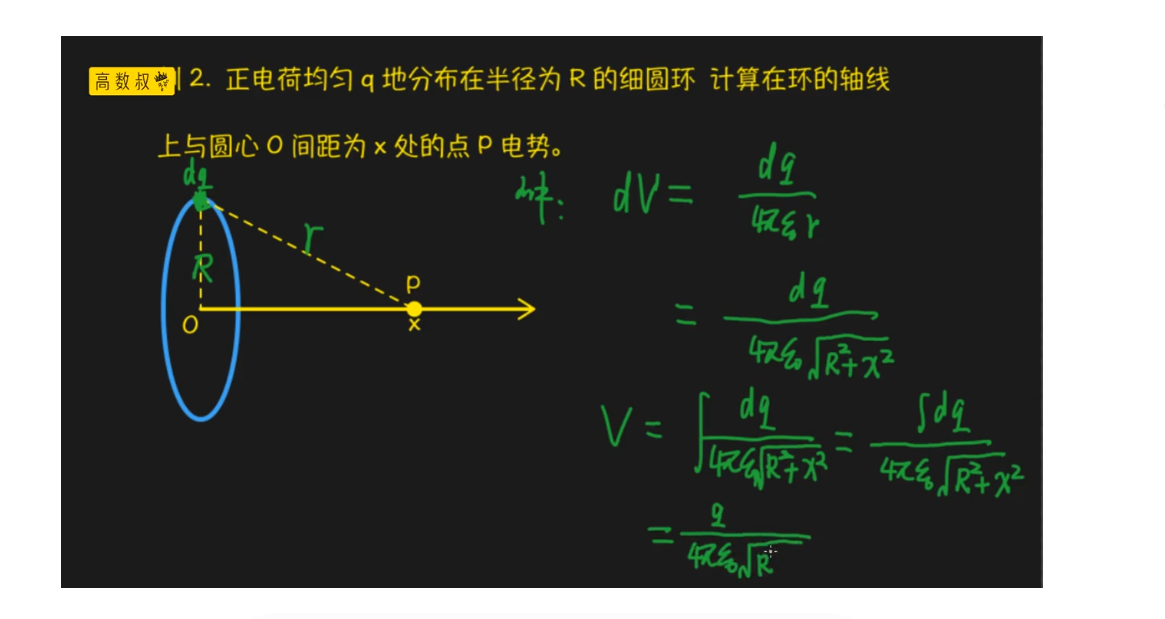 高数叔 2. 正电荷均匀 q 地分布在半径为 R 的细圆环 计算在环的轴线
上与圆心 O 间距为 x 处的点 P 电势。
dq
r
R
O
P
x
解: dV = dq / 4πε₀r
= dq / 4πε₀√(R²+x²)
V = ∫ dq / 4πε₀√(R²+x²) = ∫dq / 4πε₀√(R²+x²)
= q / 4πε₀√R